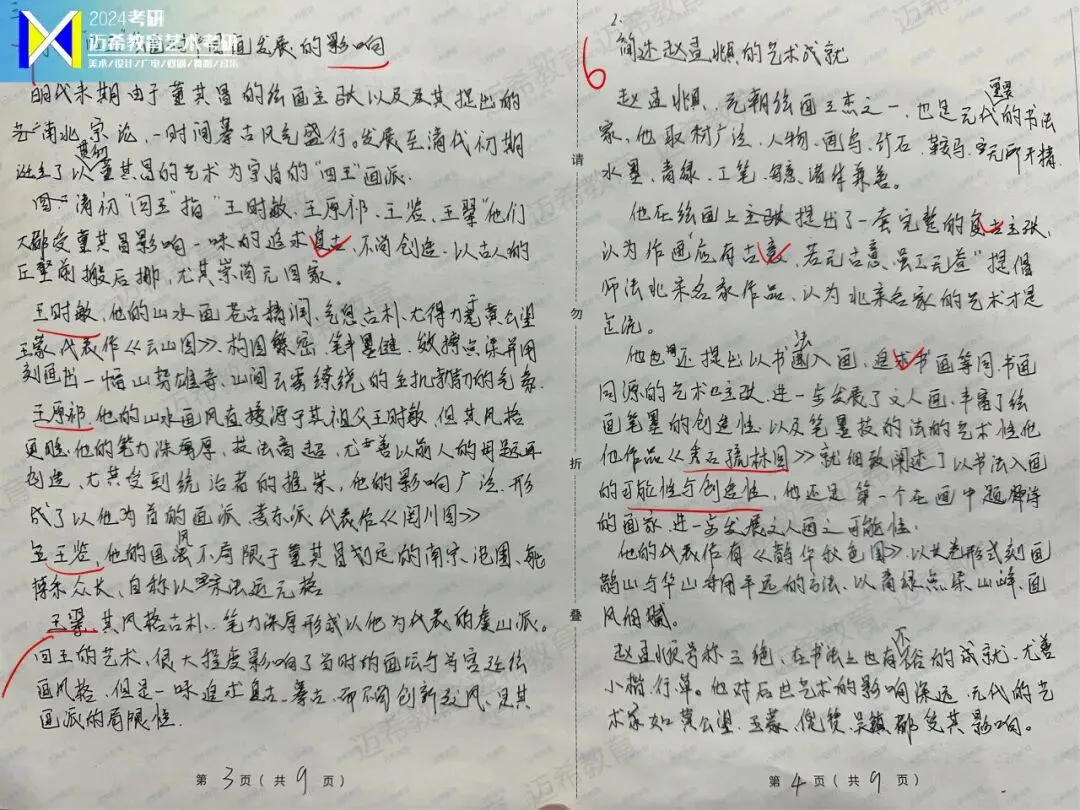 2024考研
迈希教育艺术考研
美术/设计/广电/戏剧/舞蹈/音乐
画发展的影响
明代末期由于董其昌的绘画主张以及及其提出的
艺南北宗论，一时间摹古风气盛行。发展至清代初期
诞生了以董其昌的艺术为宗旨的"四王"画派.
清初"四王"指"王时敏、王原祁、王鉴、王翚"他们
大都受董其昌影响一味的追求复古，不尚创造，以古人的
丘壑前搬后挪，尤其崇尚元四家。
王时敏，他的山水画苍古精润，气息古朴，尤得力于黄公望
王蒙，代表作《云山图》，构图繁密，笔丰墨健，
刻画出一幅山势雄奇，山间云雾缭绕的生机勃勃的气象.
王原祁，他的山水画风直接源于其祖父王时敏，但其风格
更胜，他的笔力深厚厚，技法高超，尤善以前人的用题再
创造，尤其受到统治者的推崇，他的影响广泛，形
成了以他为首的画派，娄东派，代表作《辋川图》
王鉴，他的画风不局限于董其昌划定的南宗范围，能
博采众长，自称以宋法运元格
王翚，其风格古朴，笔力深厚形成以他为代表的虞山派。
四王的艺术，很大程度影响了当时的画坛与书室近绘
画风格，但是一味追求复古、摹古，而不尚创新之风，是其
画派的局限性.
第3页(共9页)
请
勿
折
叠
2.
6
简述赵孟頫的艺术成就
赵孟頫，元朝绘画三杰之一，也是元代的重要书法
家，他取材广泛，人物、画鸟、竹石、鞍马，无所不精，
水墨、青绿、工笔、写意，诸体兼善。
他在绘画上主张提出了一套完整的复古主张，
认为作画"应有古意，若无古意，虽工无益"提倡
师法北宋名家作品，认为北宋名家的艺术才是
正流。
他也还提出以书法入画，追求书画等同，书画
同源的艺术主张，进一步发展了文人画，丰富了绘
画笔墨的创造性，以及笔墨技的法的艺术性他
他作品《秀石疏林图》就细致阐述了以书法入画
的可能性与创造性，他还是第一个在画中题诗
的画家，进一步发展文人画之可能性.
他的代表作有《鹊华秋色图》，以长卷形式刻画
鹊山与华山，并用平远的方法，以青绿点染山峰，画
风细腻
赵孟頫号称三绝，在书法上也有不俗的成就，尤善
小楷、行草。他对后世艺术的影响深远，元代的艺
术家如黄公望、王蒙、倪瓒、吴镇都受其影响。
第4页(共9页)